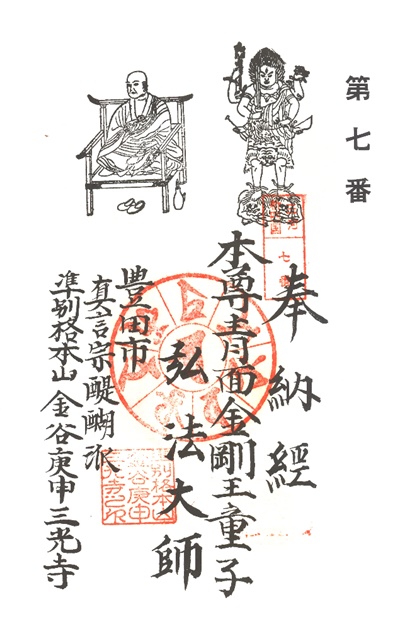 第七番
奉納経
本尊青面金剛王童子
弘法大師
豊田市
真言宗醍醐派
準別格本山金谷庚申三光寺